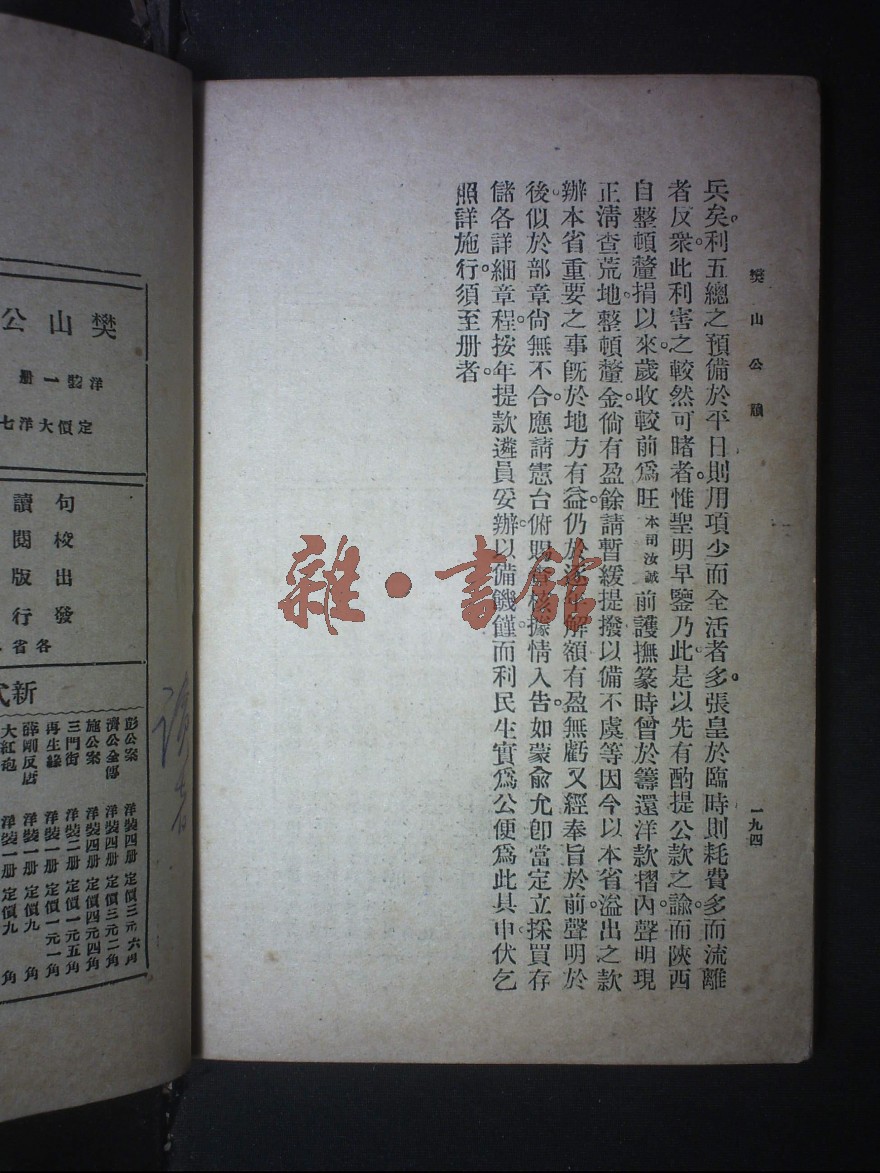 樊山公牘
一九四
兵矣。利五總之預備於平日。則用項少而全活者多。張皇於臨時則耗費多而流離
者反衆。此利害之較然可睹者。惟聖明早鑒乃此。是以先有酌提公款之諭。而陝西
自整頓釐捐以來。歲收較前爲旺本司汝誠前護撫篆時曾於籌還洋款摺內。聲明現
正淸查荒地。整頓釐金。倘有盈餘請暫緩提撥以備不虞等因今以本省溢出之款
辦本省重要之事旣於地方有益。仍於 解額有盈無虧又經奉旨於前。聲明於
後。似於部章尙無不合。應請憲台俯賜 核。據情入告。如蒙俞允卽當定立採買存
儲各詳細章程。按年提款遴員妥辦。以備饑饉。而利民生實爲公便爲此具申。伏乞
照詳施行。須至册者。
樊山公
洋裝一册
定價大洋七
句讀
校閱
出版
發行
各省
新式
彭公案 洋裝四册 定價三元六角
濟公全傳 洋裝四册 定價三元二角
施公案 洋裝四册 定價四元四角
三門街 洋裝二册 定價一元五角
再生緣 洋裝一册 定價一元一角
薛剛反唐 洋裝一册 定價九角
大紅袍 洋裝一册 定價九角
雜·書館